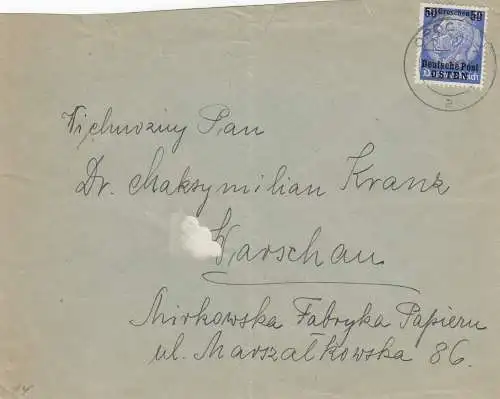 50 Groschen 50
Deutsche Post
OSTEN
Wielmożny Pan
Dr. Maksymilian Kranz
Warschau
Mirkowska Fabryka Papieru
ul. Marszałkowska 86.